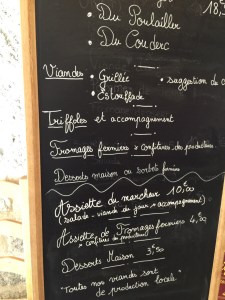 18,5
• Du Poulailler
• Du Couderc
Viandes • Grillée • suggestion du
• Estouffade
Triffoles et accompagnement
Fromages fermiers & confitures des producteurs
Desserts maison ou sorbets fermiers
Assiette du marcheur 10,00
(salade - viande du jour - accompagnement)
Assiette de Fromages fermiers 4,50
& confitures de producteurs
Desserts Maison 3,50
"Toutes nos viandes sont
de production locale"